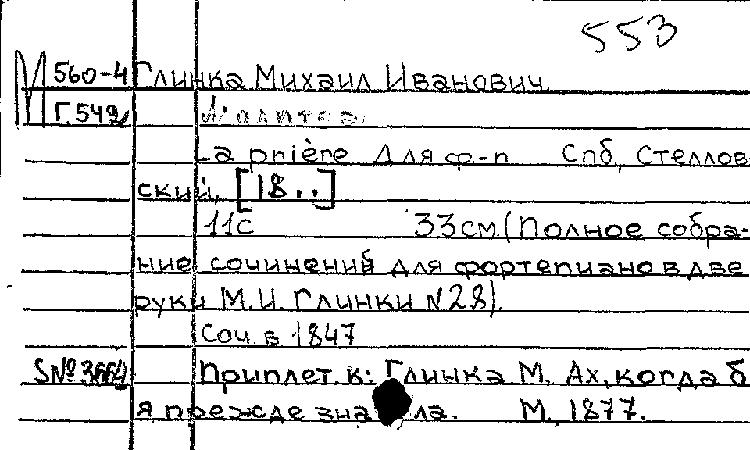 553
М 560-4 Глинка Михаил Иванович
Г.542 Молитва.
La prière Для ф-п Спб, Стеллов
ский, [18..]
11с 33см (Полное собра-
ние сочинений для фортепиано в две
руки М.И. Глинки N28).
Соч. в 1847
S№3664 Приплет. к: Глинка М. Ах, когда б
я прежде знала. М. 1877.